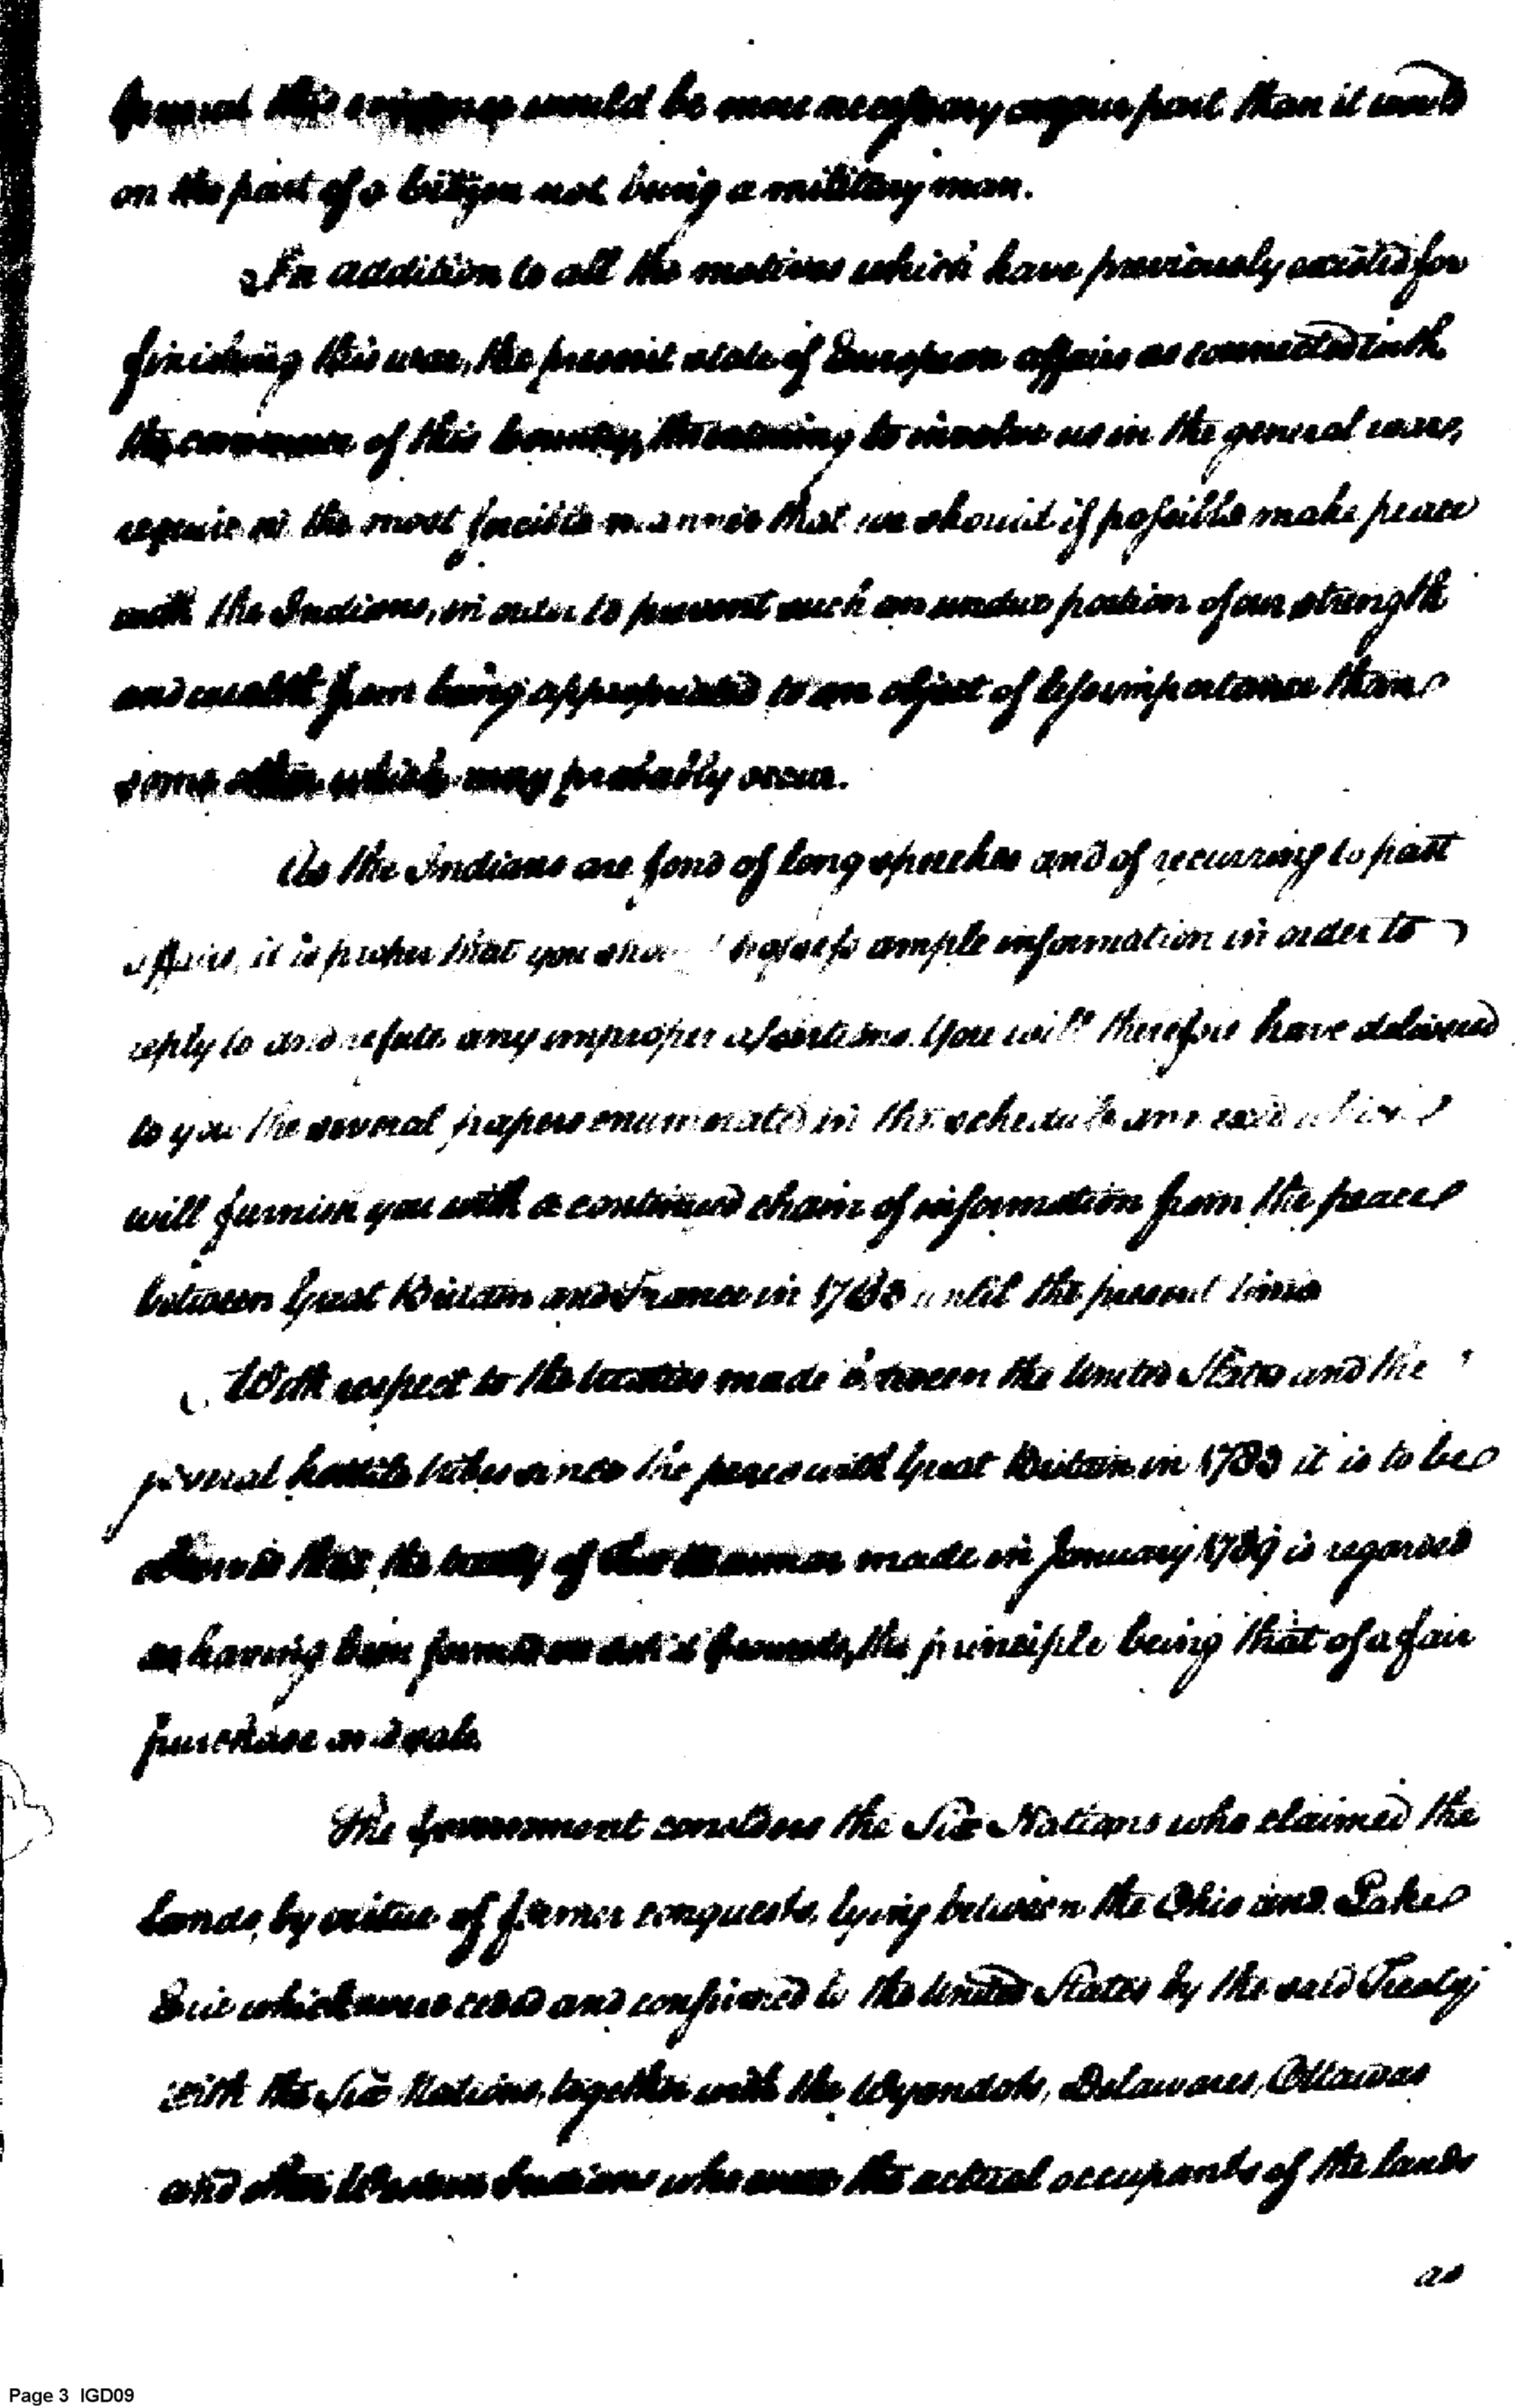 this would be more necessary on your part than it would
on the part of a Citizen not being a military man.
In addition to all the motives which have previously existed for
finishing this war, the present state of European affairs as connected with
the commerce of this Country, threatening to involve us in the general war,
require in the most forcible manner that we should if possible make peace
with the Indians, in order to prevent such an undue portion of our strength
and wealth from being appropriated to an object of less importance than
some other which may probably occur.
As the Indians are fond of long speeches and of recurring to past
affairs, it is proper that you should possess ample information in order to
reply to and refute any improper assertions. You will therefore have delivered
to you the several papers enumerated in the schedule annexed which
will furnish you with a continued chain of information from the peace
between Great Britain and France in 1763 until the present time
With respect to the treaties made between the United States and the
several hostile tribes since the peace with Great Britain in 1783 it is to be
observed that the treaty of Fort Harmar made in January 1789 is regarded
as having been formed on solid grounds, the principle being that of a fair
purchase and sale.
The Government considers the Six Nations who claimed the
lands, by virtue of former conquests, lying between the Ohio and Lake
Erie which were ceded and confirmed to the United States by the said Treaty
with the Six Nations, together with the Wyandots, Delawares, Ottawas
and other Western Indians who were the actual occupants of the lands
as
Page 3 IGD09